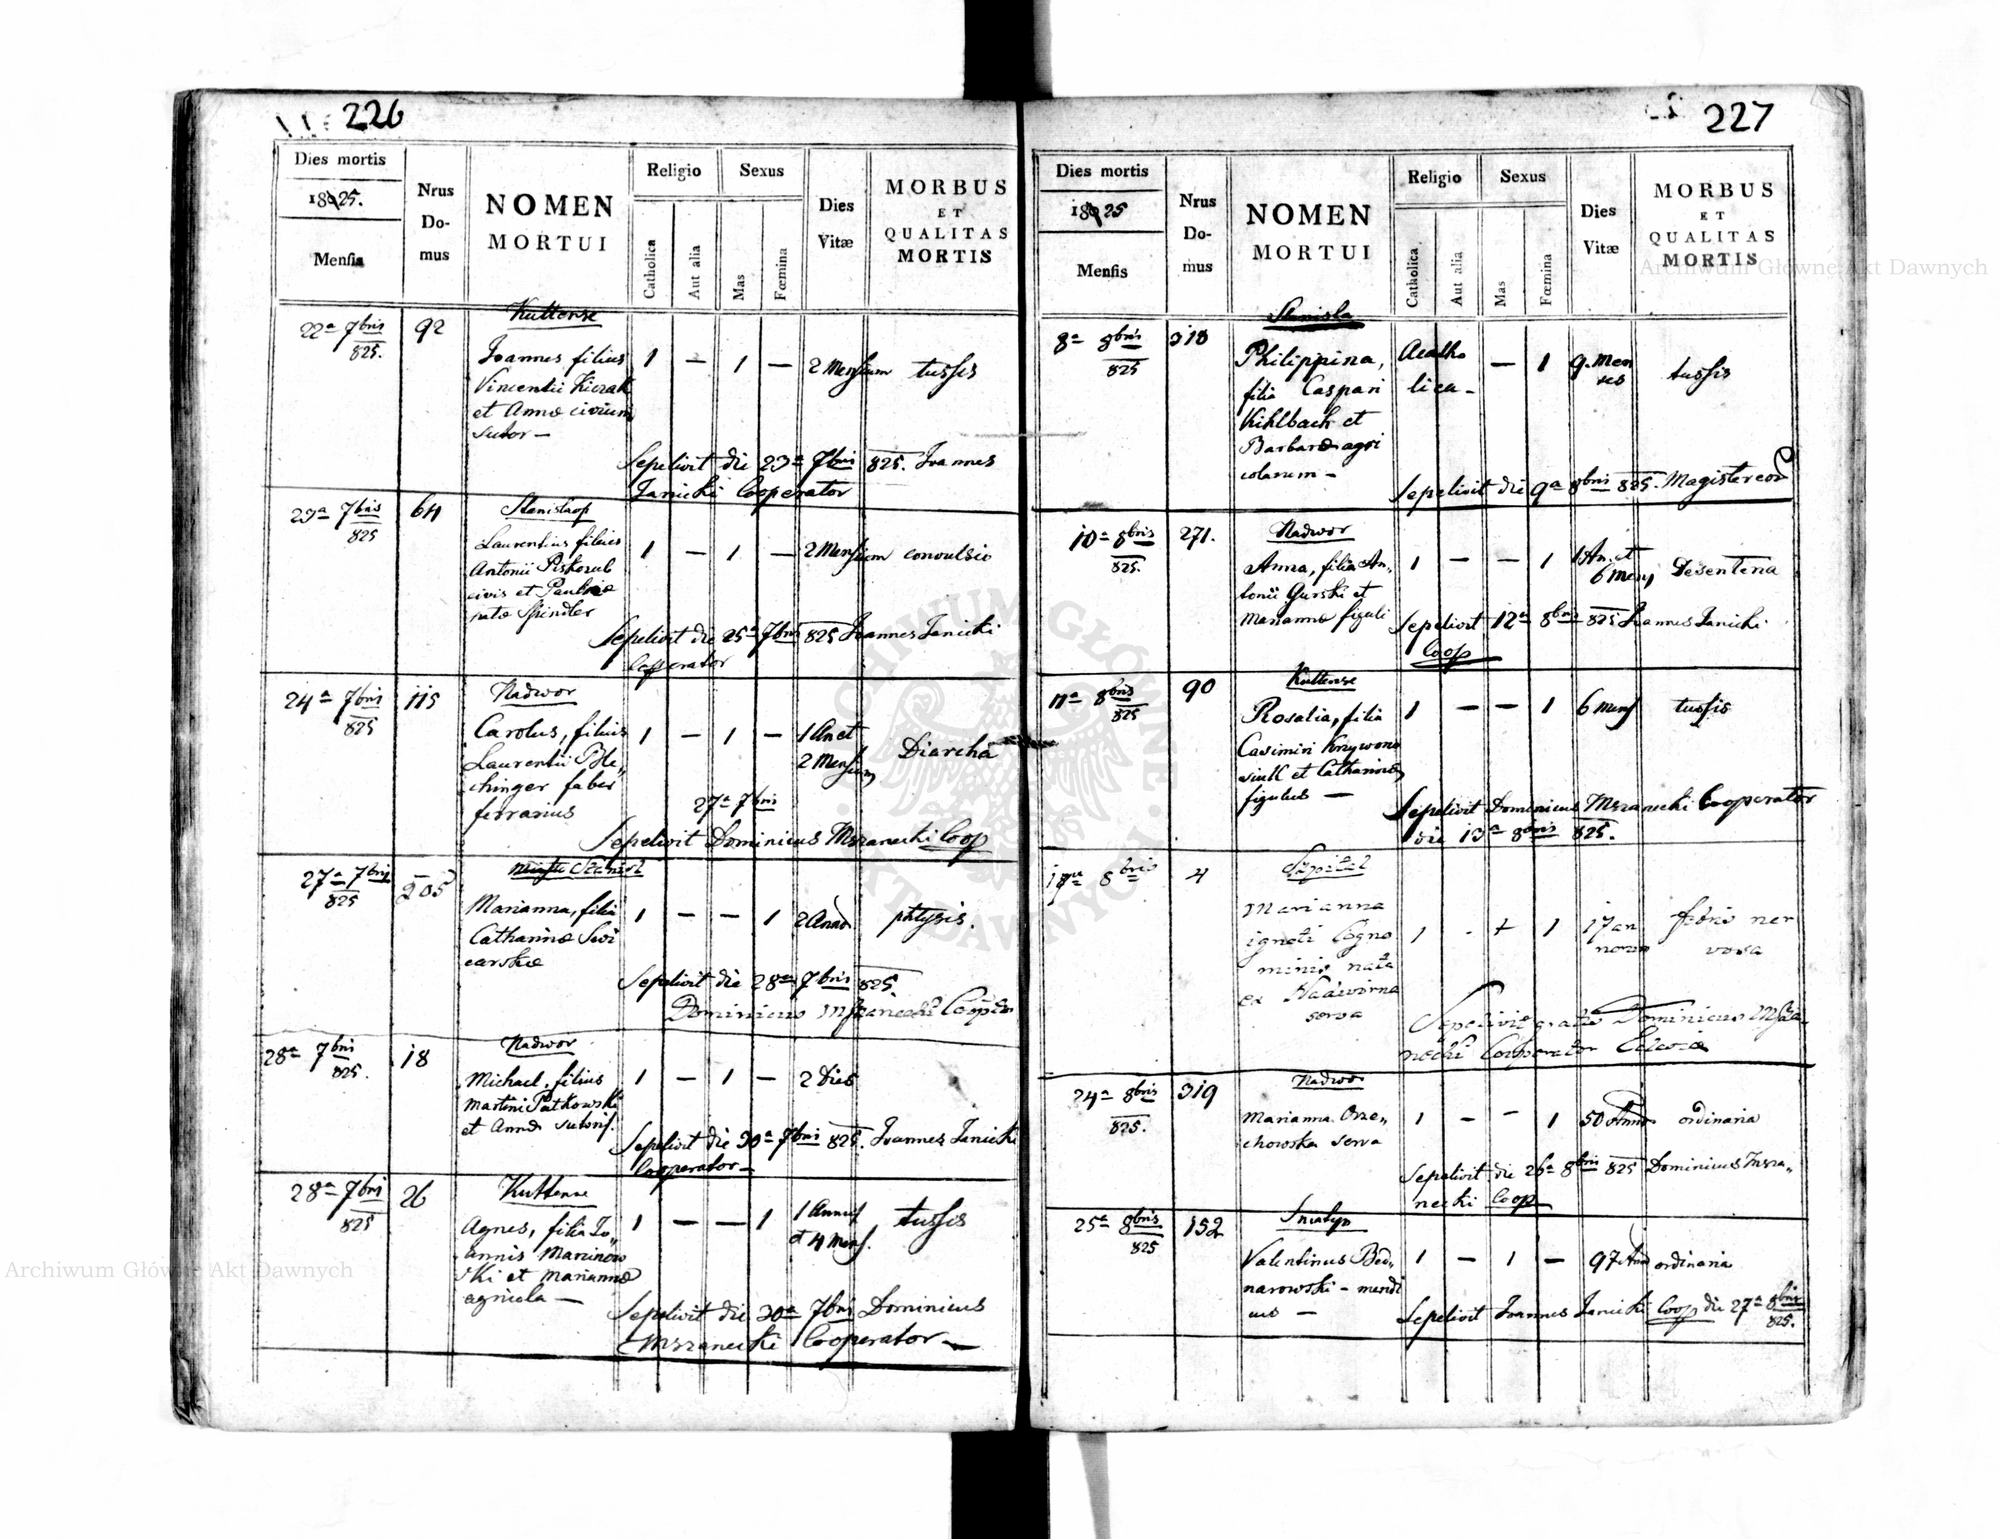 226
Dies mortis
1825.
Mensis
Nrus
Do-
mus
NOMEN
MORTUI
Religio
Catholica
Aut alia
Sexus
Mas
Fœmina
Dies
Vitæ
MORBUS
ET
QUALITAS
MORTIS
22a 7bris
825.
92
Kuttense
Joannes filius
Vincentii
et Annæ civium
sutor —
1 — 1 —
2 Mensium
tussis
Sepelivit die 23a 7bris 825. Joannes
Janicki Cooperator
23a 7bris
825
64
Laurentius filius
Antonii Piskozub
civis et
natæ Spindler
1 — 1 —
2 Mensium
convulsio
Sepelivit die 25a 7bris 825 Joannes Janicki
Cooperator
24a 7bris
825
115
Nadwor
Carolus, filius
Laurentii Ble,,
chinger faber
ferrarius
1 — 1 —
1 An et
2 Mensium
Diarchá
27a 7bris
Sepelivit Dominicus Mszanecki Coop
27a 7bris
825
205
Marianna, filia
Catharinæ Swi
carskæ
1 — — 1
2 Anno
phtysis.
Sepelivit die 28a 7bris 825.
Dominicus Mszanecki
28a 7bris
825.
18
Nadwor
Michael, filius
Martini Patkowski
et Annæ
1 — 1 —
2 Dies
Sepelivit die 30a 7bris 825. Joannes Janicki
Cooperator —
28a 7bris
825
26
Kuttense
Agnes, filia Jo,,
annis Marcinow
ski et Mariannæ
agricola —
1 — — 1
1 Annus
et 4 Mens.
tussis
Sepelivit die 30a 7bris Dominicus
Mszanecki Cooperator —
227
Dies mortis
1825
Mensis
Nrus
Do-
mus
NOMEN
MORTUI
Religio
Catholica
Aut alia
Sexus
Mas
Fœmina
Dies
Vitæ
MORBUS
ET
QUALITAS
MORTIS
8a 8bris
825
318
Stanisla
Philippina,
filia Caspari
Kihlbach et
Barbaræ agri
colarum —
Acatho
lica —
— 1
9. Men
ses
tussis
Sepelivit die 9a 8bris 825.
10a 8bris
825.
271.
Nadwor
Anna, filia An,,
tonii Gurski et
Mariannæ figuli
1 — — 1
1 An. et
6 mens
Desenteria
Sepelivit 12a 8bris 825 Joannes Janicki
Coop
11a 8bris
825
90
Kuttense
Rosalia, filia
Casimiri Krzywono
siuk et Catharinæ
figulus —
1 — — 1
6 mens
tussis
Sepelivit Dominicus Mszanecki Cooperator
die 13a 8bris 825.
8bris
4
Szpital
Marianna
ignoti Cogno
minis nata
ex Nadwirna
serva
1 - + 1
17 an
norum
febris ner
vosa
Sepelivit gratis Dominicus Msza-
necki Cooperator
24a 8bris
825.
319
Nadwor
Marianna Orze,,
chowska serva
1 — — 1
50 Anno
ordinaria
Sepelivit die 26a 8bris 825 Dominicus Msza,,
necki Coop
25a 8bris
825
152
Sniatyn
Valentinus Bed,,
narowski — mendi
cus —
1 — 1 —
97 Ann
ordinaria
Sepelivit Joannes Janicki Coop die 27a 8bris
825.
Archiwum Główne Akt Dawnych
Archiwum Główne Akt Dawnych
ARCHIWUM GŁÓWNE AKT DAWNYCH